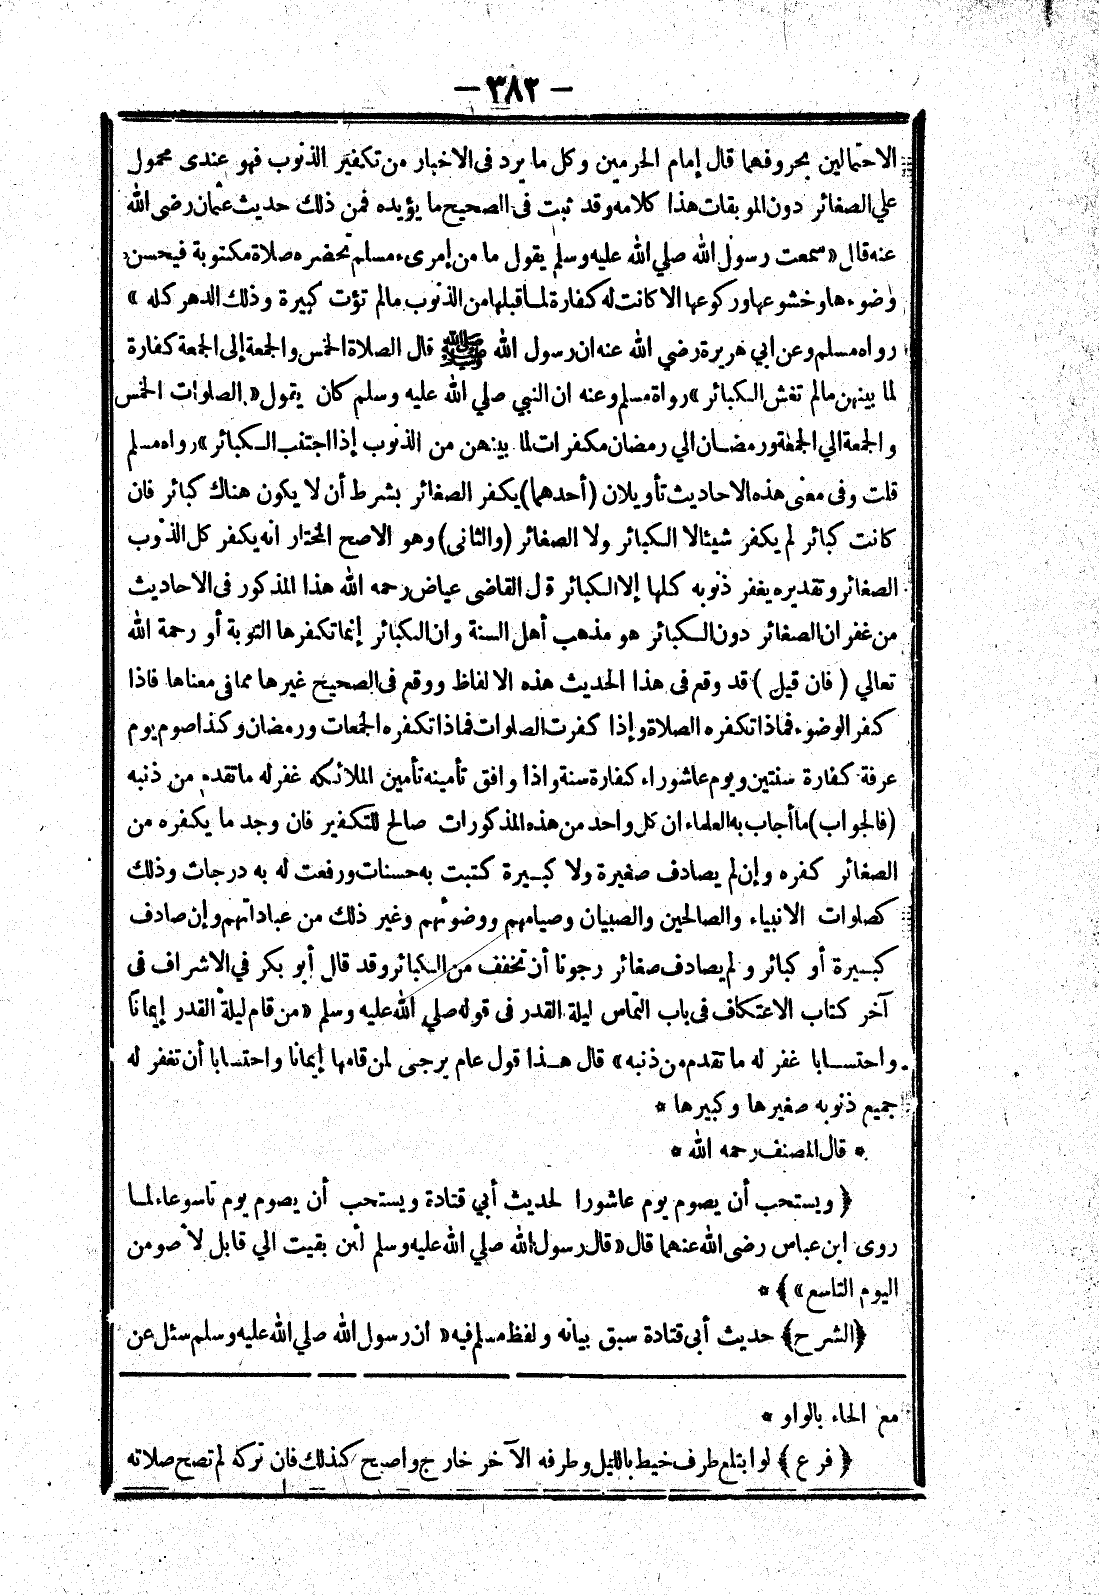 — ٣٨٢ —
الاحتمالين بحروفهما قال إمام الحرمين وكل ما يرد فى الاخبار من تكفير الذنوب فهو عندى محمول
علي الصغائر دون الموبقات هذا كلامه وقد ثبت فى الصحيح ما يؤيده فمن ذلك حديث عثمان رضى الله
عنه قال «سمعت رسول الله صلي الله عليه وسلم يقول ما من إمرىء مسلم تحضره صلاة مكتوبة فيحسن
وضوءها وخشوعها وركوعها الا كانت له كفارة لمـا قبلها من الذنوب مالم تؤت كبيرة وذلك الدهر كله »
رواه مسلم وعن ابي هريرة رضي الله عنه ان رسول الله ﷺ قال الصلاة الخمس والجمعة إلى الجمعة كفارة
لما بينهن مالم تغش الـكبائر » رواة مسلم وعنه ان النبي صلي الله عليه وسلم كان يقول «الصلوات الخمس
والجمعة الي الجمعة ورمضـان الي رمضان مكفرات لما بينهن من الذنوب إذا اجتنب الـكبائر » رواه مسلم
قلت وفى معنى هذه الاحاديث تأويلان (أحدهما) يكفر الصغائر بشرط أن لا يكون هناك كبائر فان
كانت كبائر لم يكفر شيئا لا الـكبائر ولا الصغائر (والثانى) وهو الاصح المختار انه يكفر كل الذنوب
الصغائر وتقديره يغفر ذنوبه كلها إلا الـكبائر قال القاضى عياض رحمه الله هذا المذكور فى الاحاديث
من غفران الصغائر دون الـكبائر هو مذهب أهل السنة وان الـكبائر إنما تكفرها التوبة أو رحمة الله
تعالي ( فان قيل ) قد وقع فى هذا الحديث هذه الالفاظ ووقع فى الصحيح غيرها مما فى معناها فاذا
كفر الوضوء فماذا تكفره الصلاة وإذا كفرت الصلوات فماذا تكفره الجمعات ورمضان وكذا صوم يوم
عرفة كفارة سنتين ويوم عاشوراء كفارة سنة واذا وافق تأمينه تأمين الملائكه غفر له ما تقدم من ذنبه
(فالجواب) ما أجاب به العلماء ان كل واحد من هذه المذكورات صالح للتكفير فان وجد ما يكفره من
الصغائر كفره وإن لم يصادف صغيرة ولا كبـيرة كتبت به حسنات ورفعت له به درجات وذلك
كصلوات الانبياء والصالحين والصبيان وصيامهم ووضوئهم وغير ذلك من عباداتهم وإن صادف
كبـيرة أو كبائر ولم يصادف صغائر رجونا أن تخفف من الـكبائر وقد قال أبو بكر في الاشراف فى
آخر كتاب الاعتكاف فى باب التماس ليلة القدر فى قوله صلي الله عليه وسلم «من قام ليلة القدر إيمانًا
واحتسـابا غفر له ما تقدم من ذنبه » قال هـذا قول عام يرجى لمن قامها إيمانا واحتسابا أن تغفر له
جميع ذنوبه صغيرها وكبيرها *
* قال المصنف رحمه الله *
﴿ ويستحب أن يصوم يوم عاشورا لحديث أبي قتادة ويستحب أن يصوم يوم تاسوعاء لمـا
روى ابن عباس رضى الله عنهما قال «قال رسول الله صلي الله عليه وسلم لئن بقيت الي قابل لأصومن
اليوم التاسع » ﴾ *
﴿الشرح﴾ حديث أبى قتادة سبق بيانه ولفظ مسلم فيه « ان رسول الله صلي الله عليه وسلم سئل عن
مع الحاء بالواو *
﴿ فرع ﴾ لو ابتلع طرف خيط بالليل وطرفه الآخر خارج واصبح كذلك فان تركه لم تصح صلاته